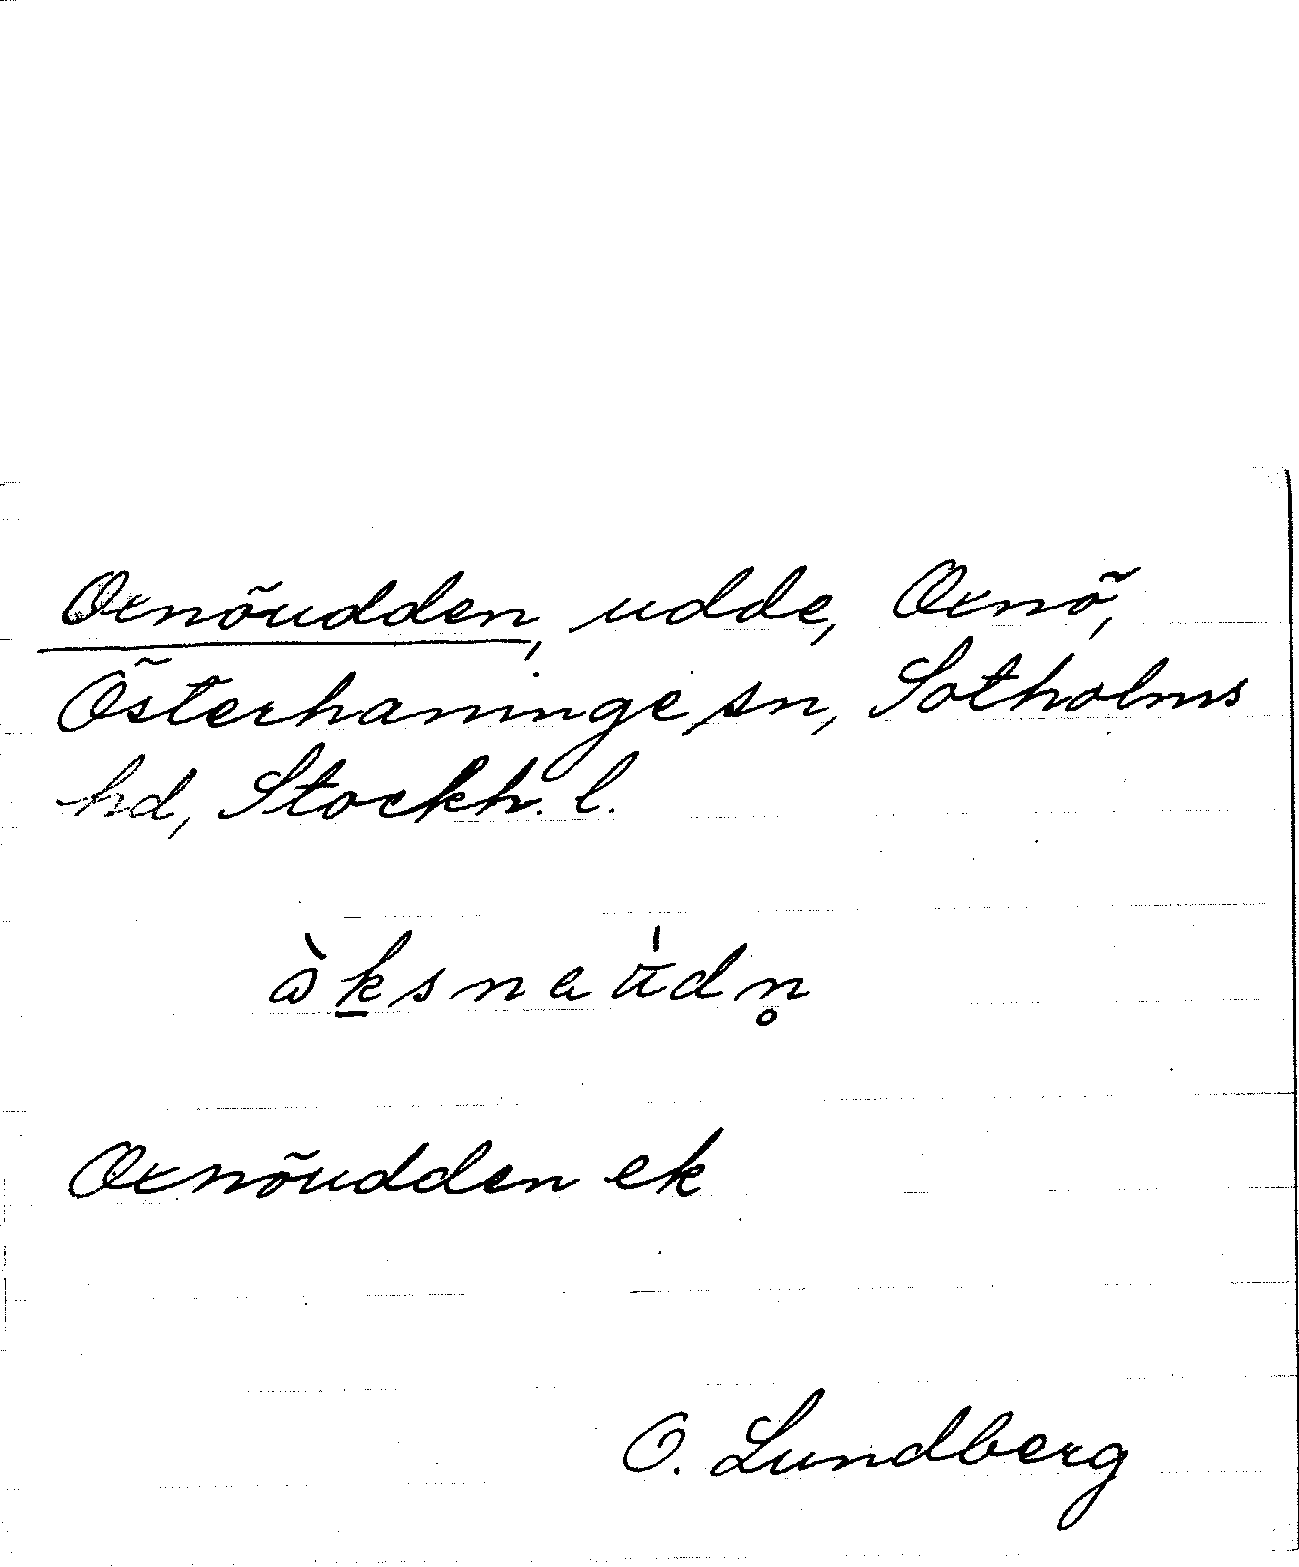 Oxnöudden, udde, Oxnö,
Österhaninge sn, Sotholms
hd, Stockh. l.
Oxnöudden ek
O. Lundberg